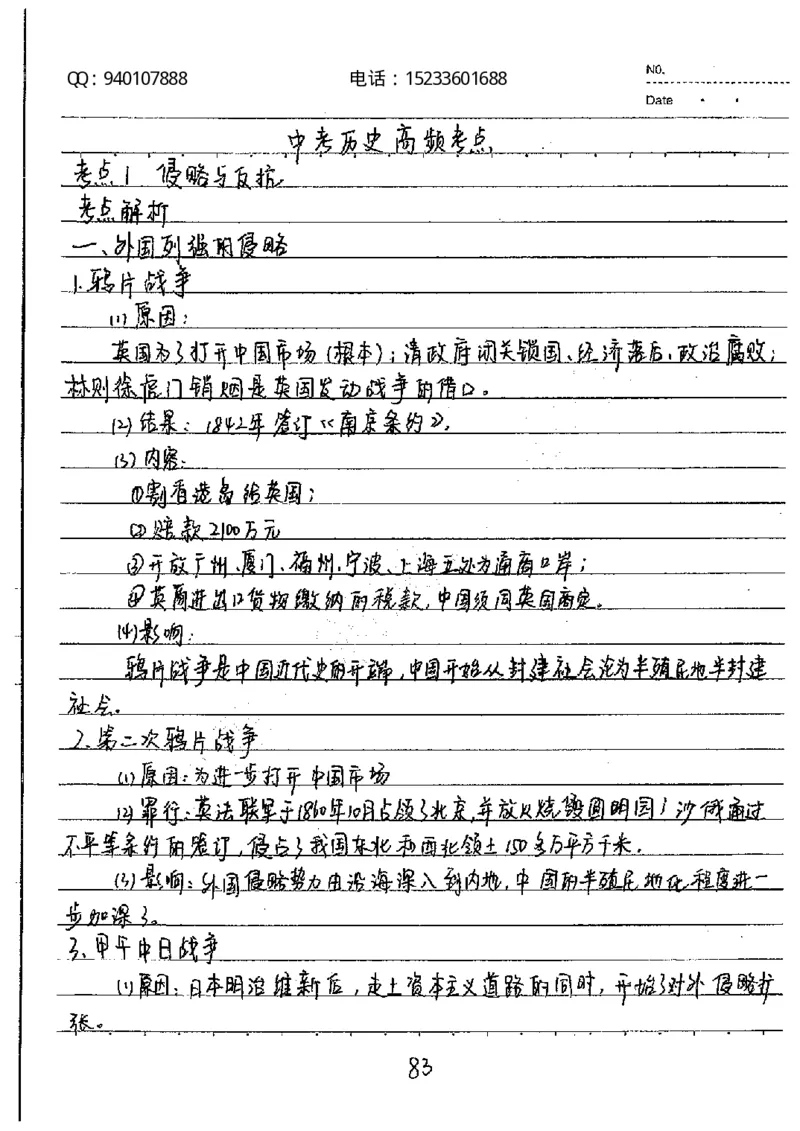 QQ：940107888 电话：15233601688 NO.
Date
中考历史高频考点
考点1 侵略与反抗
考点解析
一、外国列强的侵略
1.鸦片战争
(1)原因：
英国为了打开中国市场(根本)；清政府闭关锁国、经济落后、政治腐败；
林则徐虎门销烟是英国发动战争的借口。
(2)结果：1842年签订《南京条约》。
(3)内容：
①割香港岛给英国；
②赔款2100万元
③开放广州、厦门、福州、宁波、上海五处为通商口岸；
④英商进出口货物缴纳的税款，中国须同英国商定。
(4)影响：
鸦片战争是中国近代史的开端，中国开始从封建社会沦为半殖民地半封建
社会。
2.第二次鸦片战争
(1)原因：为进一步打开中国市场
(2)罪行：英法联军于1860年10月占领了北京，并放火烧毁圆明园；沙俄通过
不平等条约的签订，侵占了我国东北和西北领土150多万平方千米.
(3)影响：外国侵略势力由沿海深入到内地，中国的半殖民地化程度进一
步加深了。
3、甲午中日战争
(1)原因：日本明治维新后，走上资本主义道路的同时，开始了对外侵略扩
张。
83